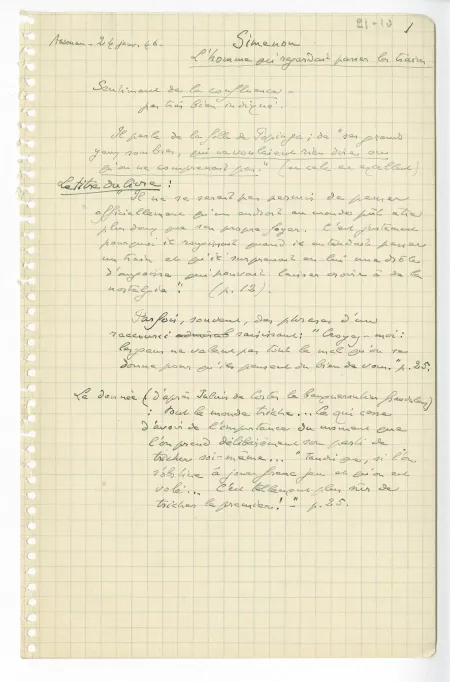 21-10
1
Assouan - 24 janv. 46 -
Simenon
L'homme qui regardait passer les trains
Sentiment de la confluence -
pas très bien indiqué.
Il parle de la fille de Popinga ; de "ses grands
yeux sombres, qui ne voulaient rien dire ou
qu'on ne comprenait pas." (en cela excellent)
Le titre du livre :
"Il ne se serait pas permis de penser
officiellement qu'un endroit au monde pût être
plus doux que son propre foyer. C'est justement
pourquoi il rougissait quand il entendait passer
un train et qu'il surprenait en lui une drôle
d'angoisse qui pouvait laisser croire à de la
nostalgie". (p. 12).
Parfois, souvent, des phrases d'un
raccourci saisissant : "Croyez-moi :
les gens ne valent pas tout le mal qu'on se
donne pour qu'ils pensent du bien de vous." p. 25.
La donnée (d'après Julius de Coster le banqueroutier frauduleux)
: Tout le monde triche... Ce qui cesse
d'avoir de l'importance du moment que
l'on prend délibérément son parti de
tricher soi-même... "Tandis que, si l'on
s'obstine à jouer franc jeu et qu'on est
volé... C'est tellement plus sûr de
tricher le premier!" - p. 25.